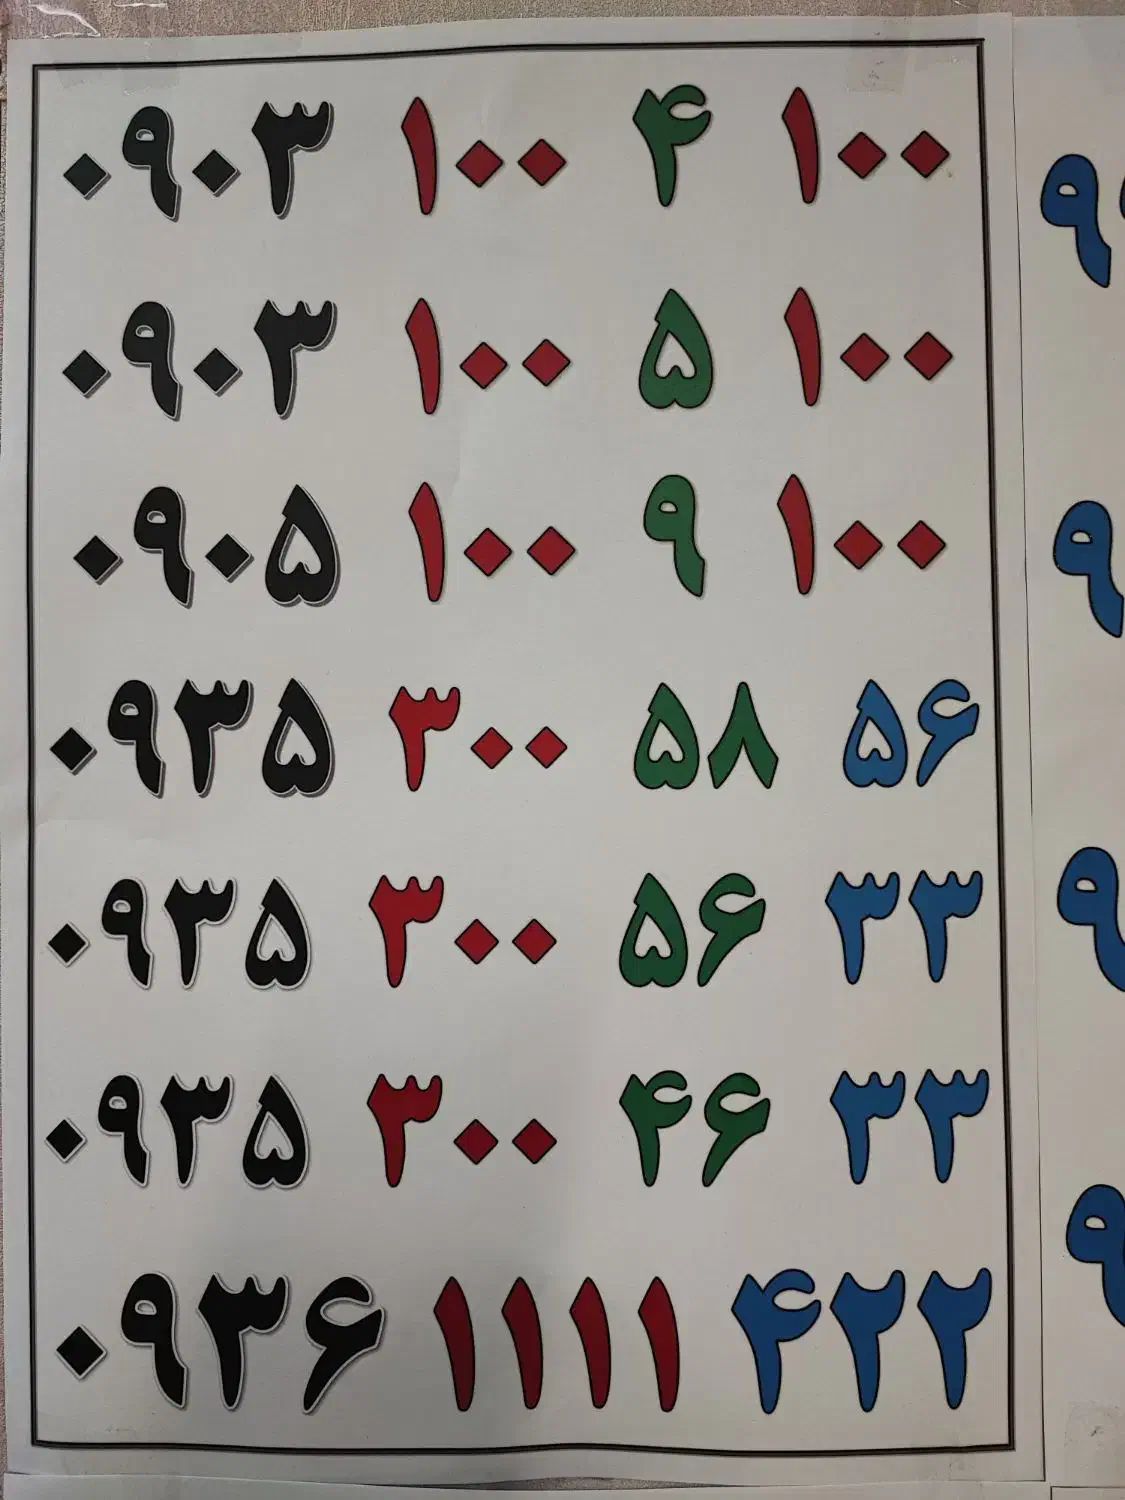 ۰۹۰۳ ۱۰۰ ۴ ۱۰۰
۰۹۰۳ ۱۰۰ ۵ ۱۰۰
۰۹۰۵ ۱۰۰ ۹ ۱۰۰
۰۹۳۵ ۳۰۰ ۵۸ ۵۶
۰۹۳۵ ۳۰۰ ۵۶ ۳۳
۰۹۳۵ ۳۰۰ ۴۶ ۳۳
۰۹۳۶ ۱۱۱۱ ۴۲۲
۹
۹
۹
۹